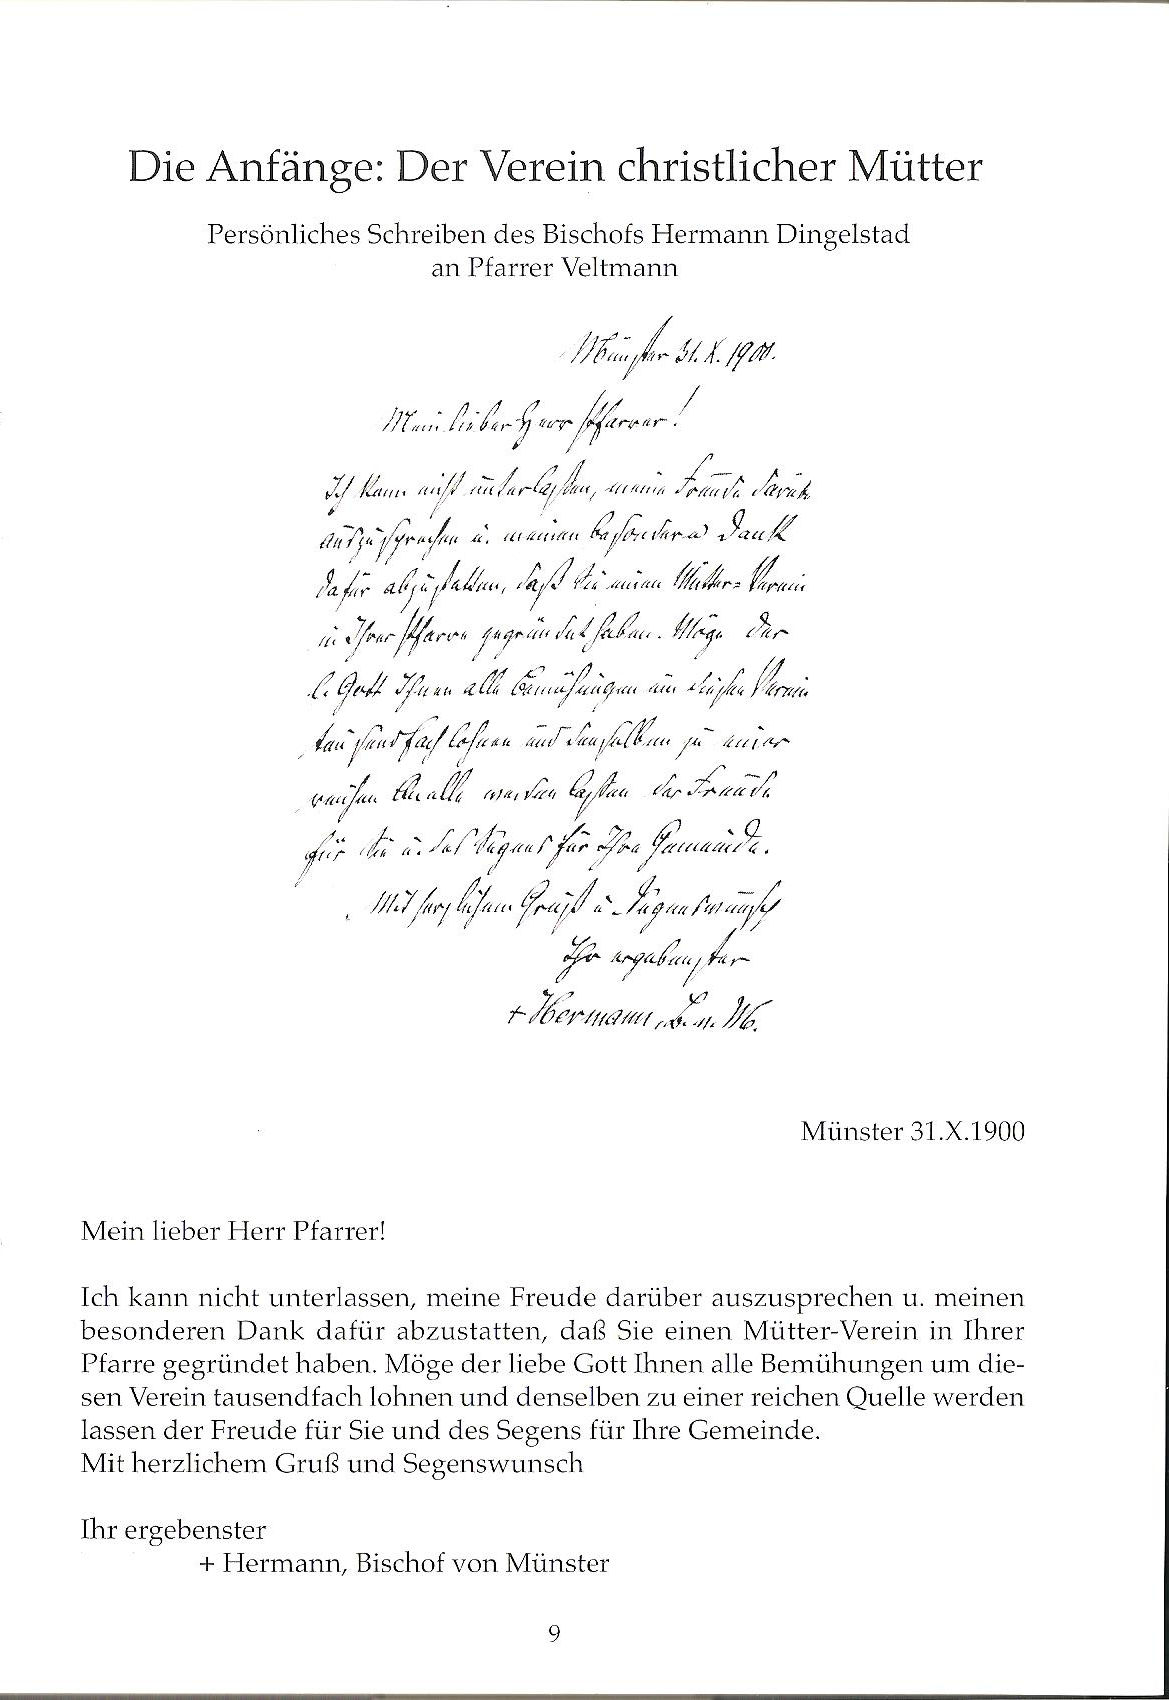 Die Anfänge: Der Verein christlicher Mütter
Persönliches Schreiben des Bischofs Hermann Dingelstad
an Pfarrer Veltmann
Münster 31. X. 1900.
Mein lieber Herr Pfarrer!
Ich kann nicht unterlassen, meine Freude darüb.
auszusprechen u. meinen besondern Dank
dafür abzustatten, daß Sie einen Mütter-Verein
in Ihrer Pfarre gegründet haben. Möge der
l. Gott Ihnen alle Bemühungen um diesen Verein
tausendfach lohnen und denselben zu einer
reichen Quelle werden lassen der Freude
für Sie u. des Segens für Ihre Gemeinde.
Mit herzlichem Gruß u. Segenswunsch
Ihr ergebenster
+ Hermann, B. v. M.
Münster 31.X.1900
Mein lieber Herr Pfarrer!
Ich kann nicht unterlassen, meine Freude darüber auszusprechen u. meinen
besonderen Dank dafür abzustatten, daß Sie einen Mütter-Verein in Ihrer
Pfarre gegründet haben. Möge der liebe Gott Ihnen alle Bemühungen um die-
sen Verein tausendfach lohnen und denselben zu einer reichen Quelle werden
lassen der Freude für Sie und des Segens für Ihre Gemeinde.
Mit herzlichem Gruß und Segenswunsch
Ihr ergebenster
+ Hermann, Bischof von Münster
9